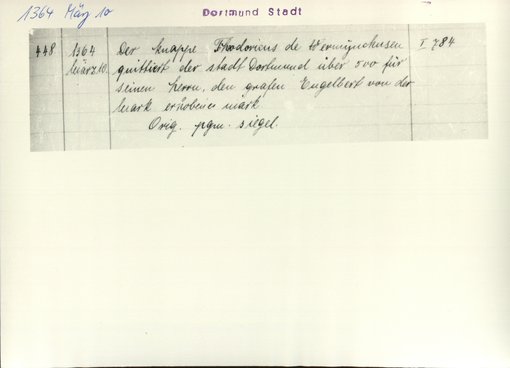 1364 März 10
Dortmund Stadt
448 1364 Der Knappe Thodoricus de Werminchusen I 784
März 10. quittiert der stadt Dortmund über 500 für
seinen herrn, den grafen Engelbert von der
Mark erhobene mark
Orig. pgm. siegel.